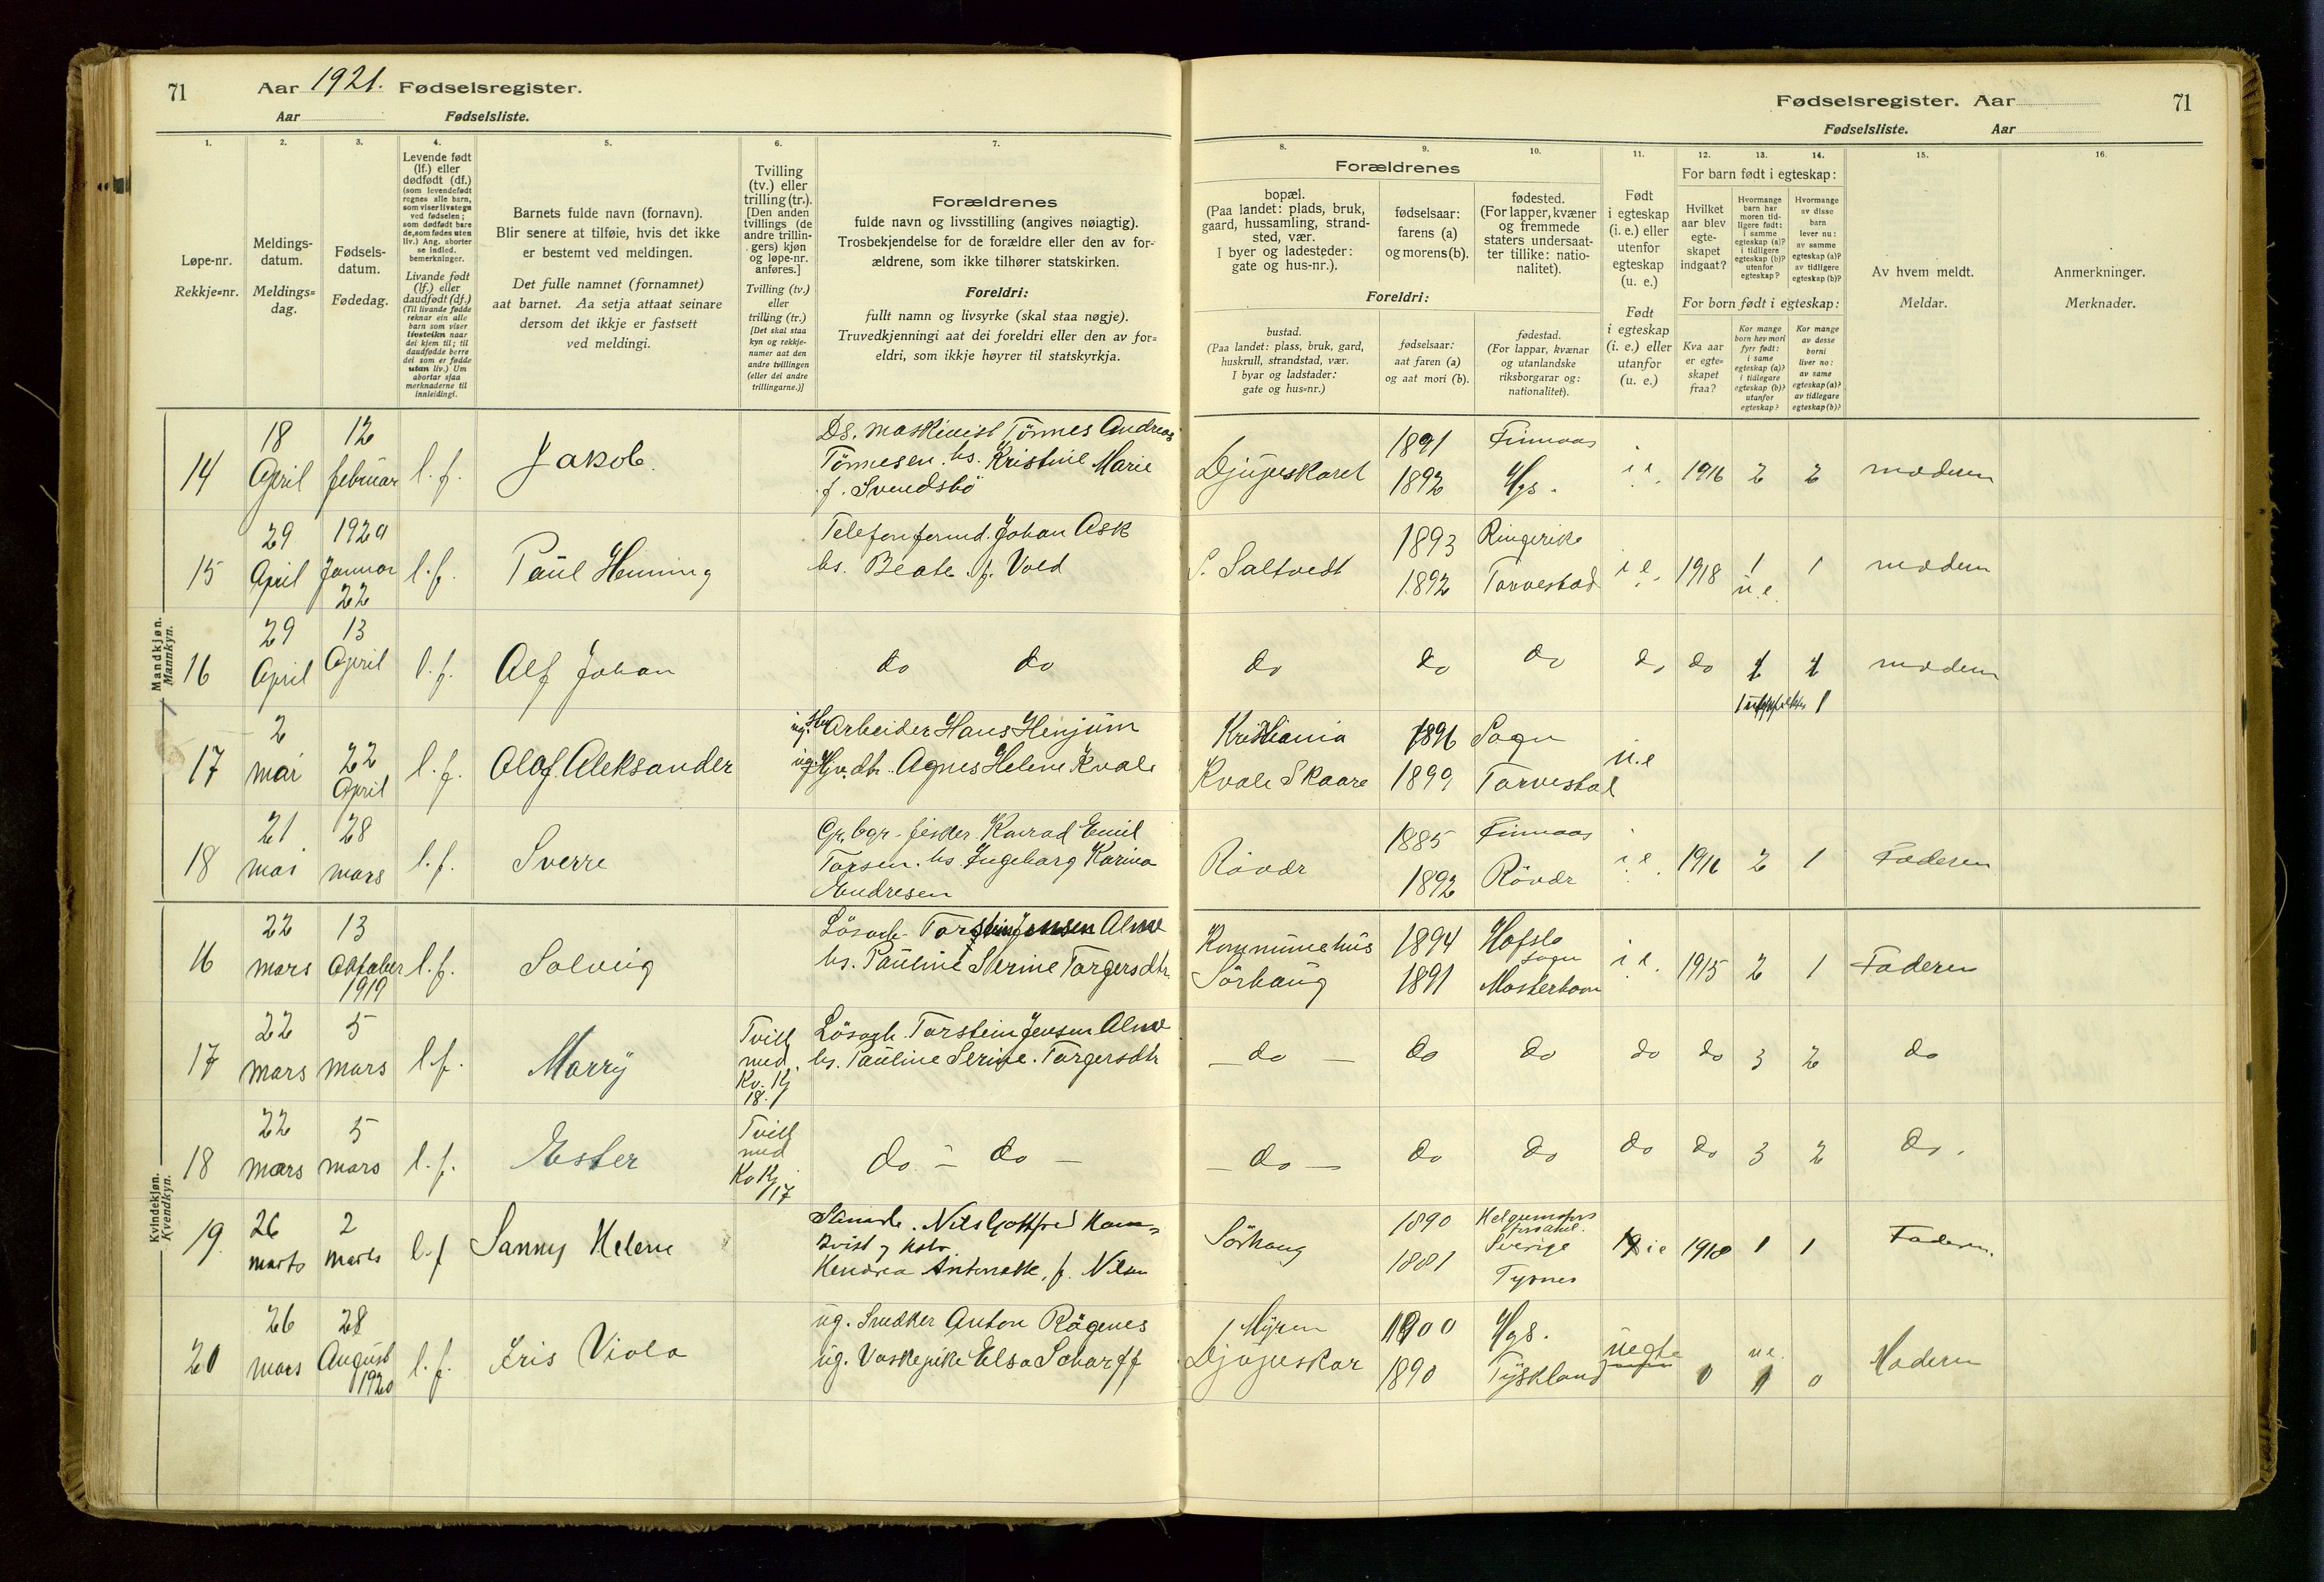 71
Aar 1921. Fødselsregister.
Aar Fødselsliste.
Fødselsregister. Aar
71
Fødselsliste. Aar
1.
Løpe-nr.
Rekkje=nr.
2.
Meldings-
datum.
Meldings=
dag.
3.
Fødsels-
datum.
Fødedag.
4.
Levende født
(lf.) eller
dødfødt (df.)
(som levendefødt
regnes alle barn,
som viser livstegn
ved fødselen;
som dødfødt bare
de, som fødes uten
liv.) Ang. aborter
se indled.
bemerkninger.
Livande født
(lf.) eller
daudfødt (df.)
(Til livande fødde
reknar ein alle
barn som viser
livsteikn naar
dei kjem til; til
daudfødde berre
dei som er fødde
utan liv.) Um
abortar sjaa
merknaderne til
innleidingi.
5.
Barnets fulde navn (fornavn).
Blir senere at tilføie, hvis det ikke
er bestemt ved meldingen.
Det fulle namnet (fornamnet)
aat barnet. Aa setja attaat seinare
dersom det ikkje er fastsett
ved meldingi.
6.
Tvilling
(tv.) eller
trilling (tr.).
[Den anden
tvillings (de
andre trillin-
gers) kjøn
og løpe-nr.
anføres.]
Tvilling (tv.)
eller
trilling (tr.)
[Det skal staa
kyn og rekkje-
numer aat den
andre tvillingen
(eller dei andre
trillingarne.)]
7.
Forældrenes
fulde navn og livsstilling (angives nøiagtig).
Trosbekjendelse for de forældre eller den av for-
ældrene, som ikke tilhører statskirken.
Foreldri:
fullt namn og livsyrke (skal staa nøgje).
Truvedkjenningi aat dei foreldri eller den av for=
eldri, som ikkje høyrer til statskyrkja.
Forældrenes
8.
bopæl.
(Paa landet: plads, bruk,
gaard, hussamling, strand-
sted, vær.
I byer og ladesteder:
gate og hus-nr.).
9.
fødselsaar:
farens (a)
og morens (b).
10.
fødested.
(For lapper, kvæner
og fremmede
staters undersaat-
ter tillike: natio-
nalitet).
Foreldri:
bustad.
(Paa landet: plass, bruk, gard,
huskrull, strandstad, vær.
I byar og ladstader:
gate og hus=nr.)
fødselsaar:
aat faren (a)
og aat mori (b).
fødestad.
(For lappar, kvænar
og utanlandske
riksborgarar og:
nationalitet).
11.
Født
i egteskap
(i. e.) eller
utenfor
egteskap
(u. e.)
Født
i egteskap
(i. e.) eller
utanfor
(u. e.)
12. 13. 14.
For barn født i egteskap:
Hvilket
aar blev
egte-
skapet
indgaat?
Hvormange
barn har
moren tid-
ligere født:
i samme
egteskap (a)?
i tidligere
egteskap (b)?
utenfor
egteskap?
Hvormange
av disse
barn
lever nu:
av samme
egteskap (a)?
av tidligere
egteskap (b)?
For born født i egteskap:
Kva aar
er egte=
skapet
fraa?
Kor mange
born hev mori
fyrr født:
i same
egteskap (a)?
i tidlegare
egteskap (b)?
utanfor
egteskap?
Kor mange
av desse
borni
liver no:
av same
egteskap (a)?
av tidlegare
egteskap (b)?
15.
Av hvem meldt.
Meldar.
16.
Anmerkninger.
Merknader.
Mandkjøn.
Mannkyn.
14 18 April 12 februar l. f. Jakob.
Ds. maskinist Tönnes Andreas
Tönnesen. hs. Kristine Marie
f. Svendsbö
Djupeskaret 1891 1892 Finnaas Hgs. i e. 1916 2 2 moderen
15 29 April 1920 Januar 22 l. f. Paul Henning
Telefonformd. Johan Ask
hs. Beate f. Vold
S. Saltvedt 1893 1892 Ringerike Torvestad i e. 1918 1 u.e. 1 moderen
16 29 April 13 April l. f. Alf Johan
do do do do do do do 1 moderen
17 2 mai 22 April l. f. Olaf Aleksander
ug. Arbeider Hans Henjum
ug. Agnes Helene Kvale
Kristiania Kvale Skaare 1896 1899 Sogn Torvestad u.e
18 21 mai 28 mars l. f. Sverre
Gr. bgr. fisker. Konrad Emil
Torsen. hs. Ingeborg Karina
Endresen
Rövær 1885 1892 Finnaas Rövær i e. 1916 2 1 Faderen
Kvindekjøn.
Kvendkyn.
16 22 mars 13 Oktober 1919 l. f. Solveig
Lösarb. Torstein Jensen Alme
hs. Pauline Serine Torgersdtr.
Kommunehus Sörhaug 1894 1891 Hafslo Sogn Mosterhavn i e. 1915 2 1 Faderen
17 22 mars 5 mars l. f. Marry
Tvill med. Kv. Kj 18.
Lösarb. Torstein Jensen Alme
hs. Pauline Serine. Torgersdtr
— do — do do do do 3 2 do
18 22 mars 5 mars l. f. Ester
Tvill med Kv Kj 17
do — do —
— do — do do do do 3 2 do.
19. 26 marts 2 marts l. f Sanny Helene
Nils Gottfred
Kvist og hstr
Hendrea Antonette, f. Nilsen
Sörhaug 1890 1881 Sverige Tysnes ie 1918 1 1 Faderen.
20 26 mars 28 August 1920 l. f. Iris Viola
ug. Snedker Anton Rögenes
ug. Vaskepike Elsa Scharff
Myren Djupeskar 1900 1890 Hgs. Tyskland uegte 0 u e. 1 0 Moderen